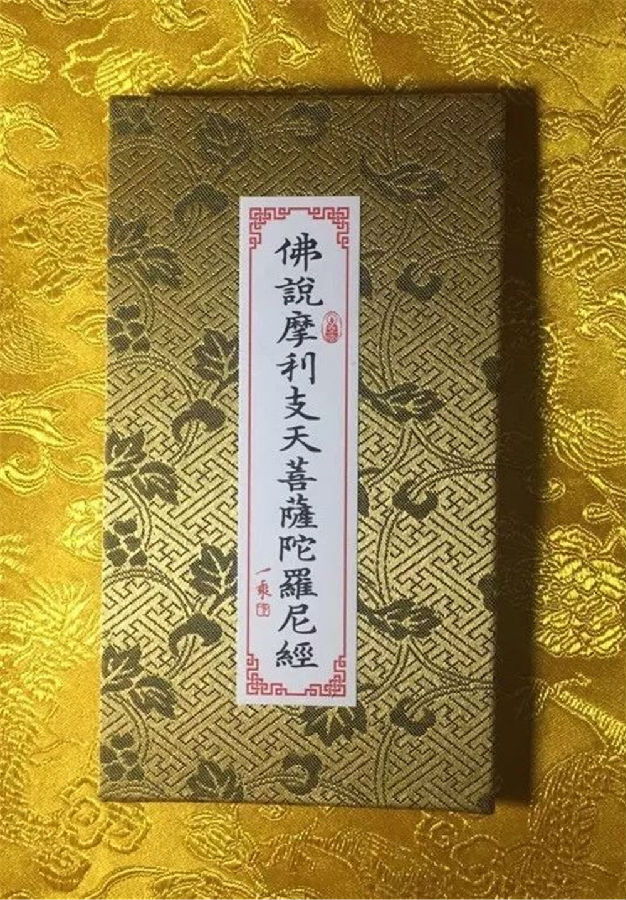 佛說摩利支天菩薩陀羅尼經
一乘